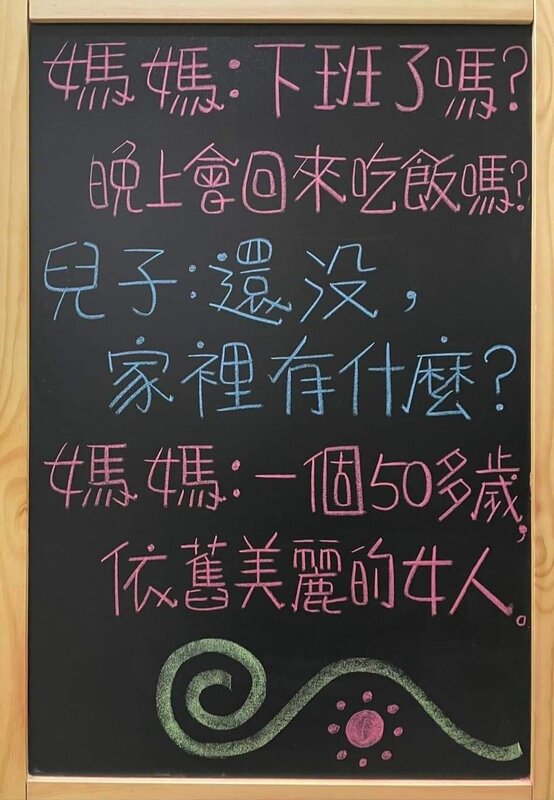 媽媽:下班了嗎?
晚上會回來吃飯嗎?
兒子:還沒,
家裡有什麼?
媽媽:一個50多歲,
依舊美麗的女人。